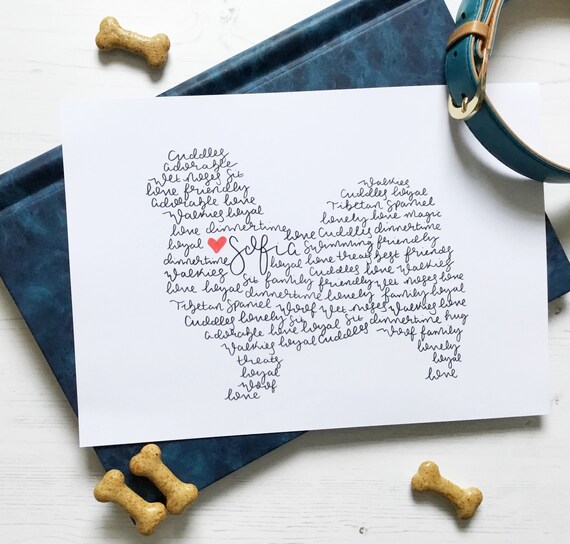 Cuddles
adorable
wet noses sit
love friendly
adorable love
Walkies loyal
love dinnertime
loyal Solfia love cuddles dinnertime
dinnertime
Walkies
Walkies
Cuddles loyal
Tibetan Spaniel
lovely love magic
swimming friendly
loyal love treats best friends
Cuddles love Walkies
love loyal sit family friendly wet noses love
dinnertime lovely family loyal
Tibetan Spaniel woof wet noses Walkies love
Cuddles lovely sit dinnertime hug
adorable love loyal sit woof family
Walkies loyal Cuddles lovely
treats loyal
loyal love
woof
love